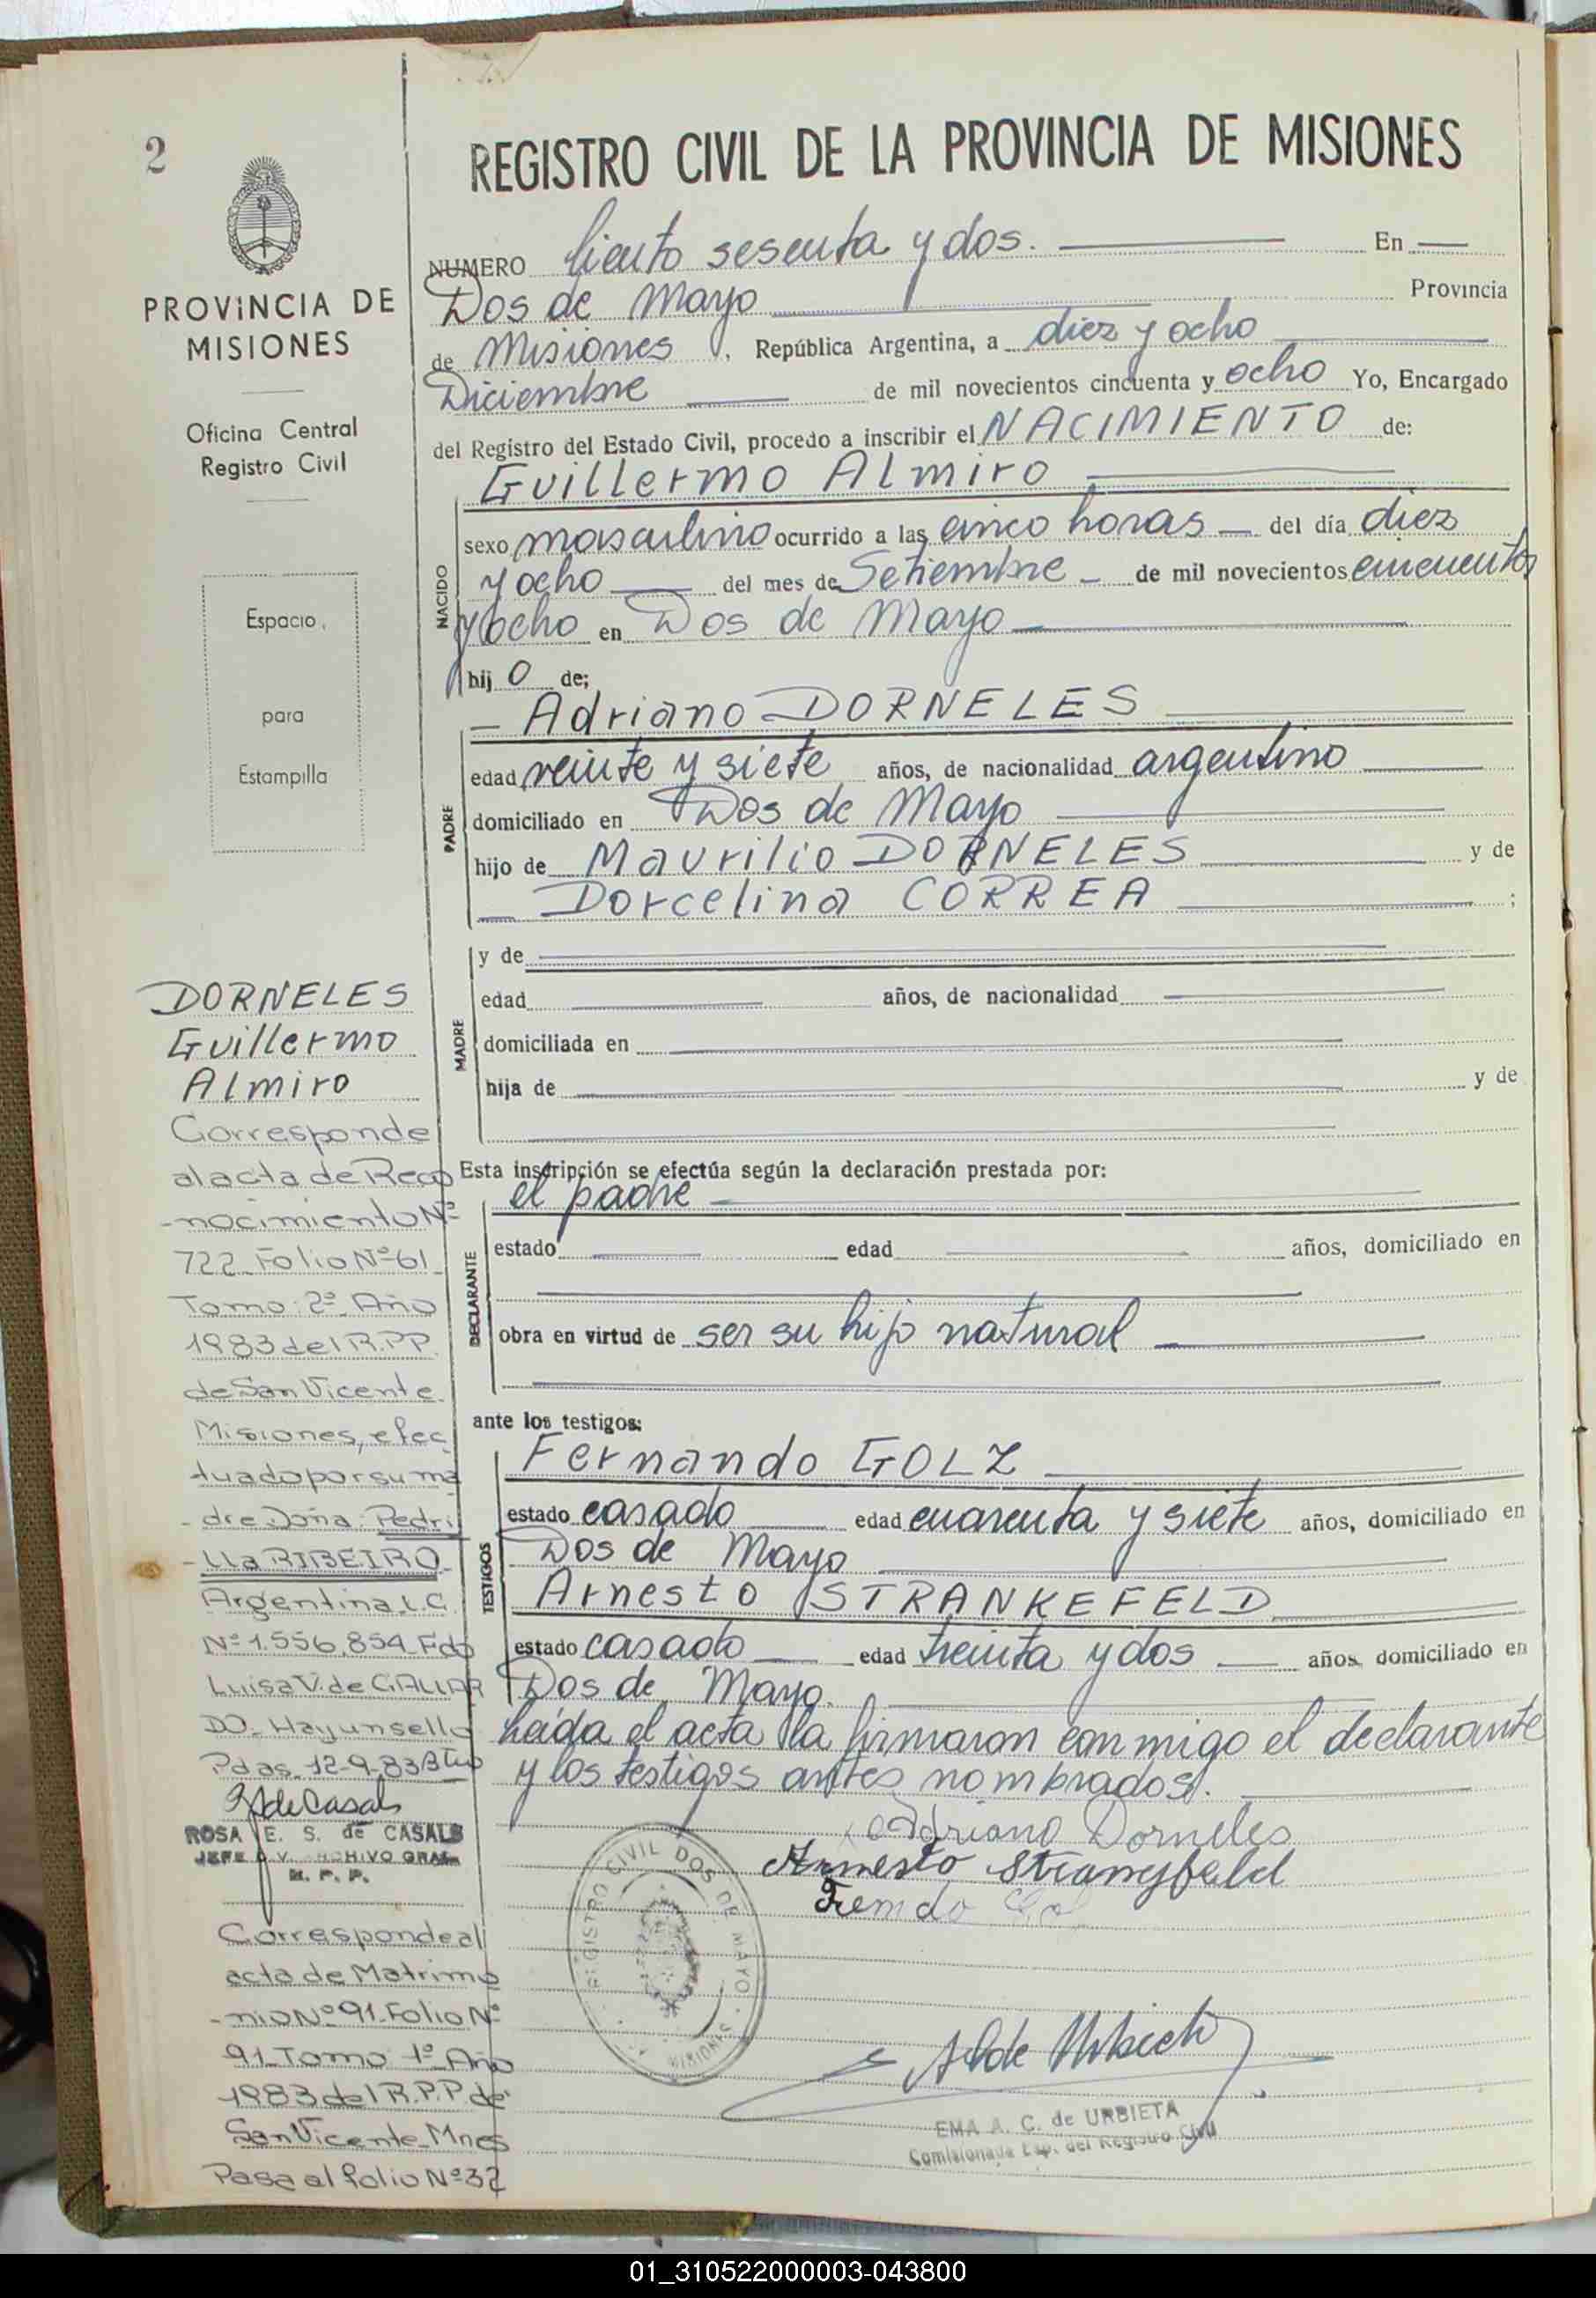 2
PROVINCIA DE
MISIONES
Oficina Central
Registro Civil
Espacio
para
Estampilla
DORNELES
Guillermo
Almiro
Corresponde
al acta de Reco
-nocimiento Nº
722 Folio Nº 61
Tomo: 2º Año
1983 del R.P.P.
de San Vicente
Misiones, efec
tuado por su ma
-dre Doña: Pedri
-lla RIBEIRO-
Argentina L.C.
Nº 1.556.854 Fdo
Luisa V. de GALLAR
DO_ Hay un sello
Pdas. 12-9-83
ROSA E. S. de CASALS
JEFE DIV. ARCHIVO GRAL.
R. P. P.
Corresponde al
acta de Matrimo
-nio Nº 91 Folio Nº
91 Tomo 1º Año
1983 del R.P.P. de
San Vicente Mnes
Pasa al folio Nº 32
REGISTRO CIVIL DE LA PROVINCIA DE MISIONES
NUMERO Ciento sesenta y dos. En
Dos de Mayo Provincia
de Misiones, República Argentina, a diez y ocho
Diciembre de mil novecientos cincuenta y ocho Yo, Encargado
del Registro del Estado Civil, procedo a inscribir el NACIMIENTO de:
Guillermo Almiro
NACIDO
sexo masculino ocurrido a las cinco horas del día diez
y ocho del mes de Setiembre de mil novecientos cincuenta
y ocho en Dos de Mayo
hijo de;
Adriano DORNELES
PADRE
edad veinte y siete años, de nacionalidad argentino
domiciliado en Dos de Mayo
hijo de Maurilio DORNELES y de
Dorcelina CORREA ;
MADRE
y de
edad años, de nacionalidad
domiciliada en
hija de y de
Esta inscripción se efectúa según la declaración prestada por:
el padre
DECLARANTE
estado edad años, domiciliado en
obra en virtud de ser su hijo natural
ante los testigos:
Fernando GOLZ
TESTIGOS
estado casado edad cuarenta y siete años, domiciliado en
Dos de Mayo
Arnesto STRANKEFELD
estado casado edad treinta y dos años, domiciliado en
Dos de Mayo.
Leída el acta la firmaron conmigo el declarante
y los testigos antes nombrados.
Adriano Dorneles
Arnesto
REGISTRO CIVIL DOS DE MAYO
MISIONES
EMA A. C. de URBIETA
Comisionada Esp. del Registro Civil
01_310522000003-043800